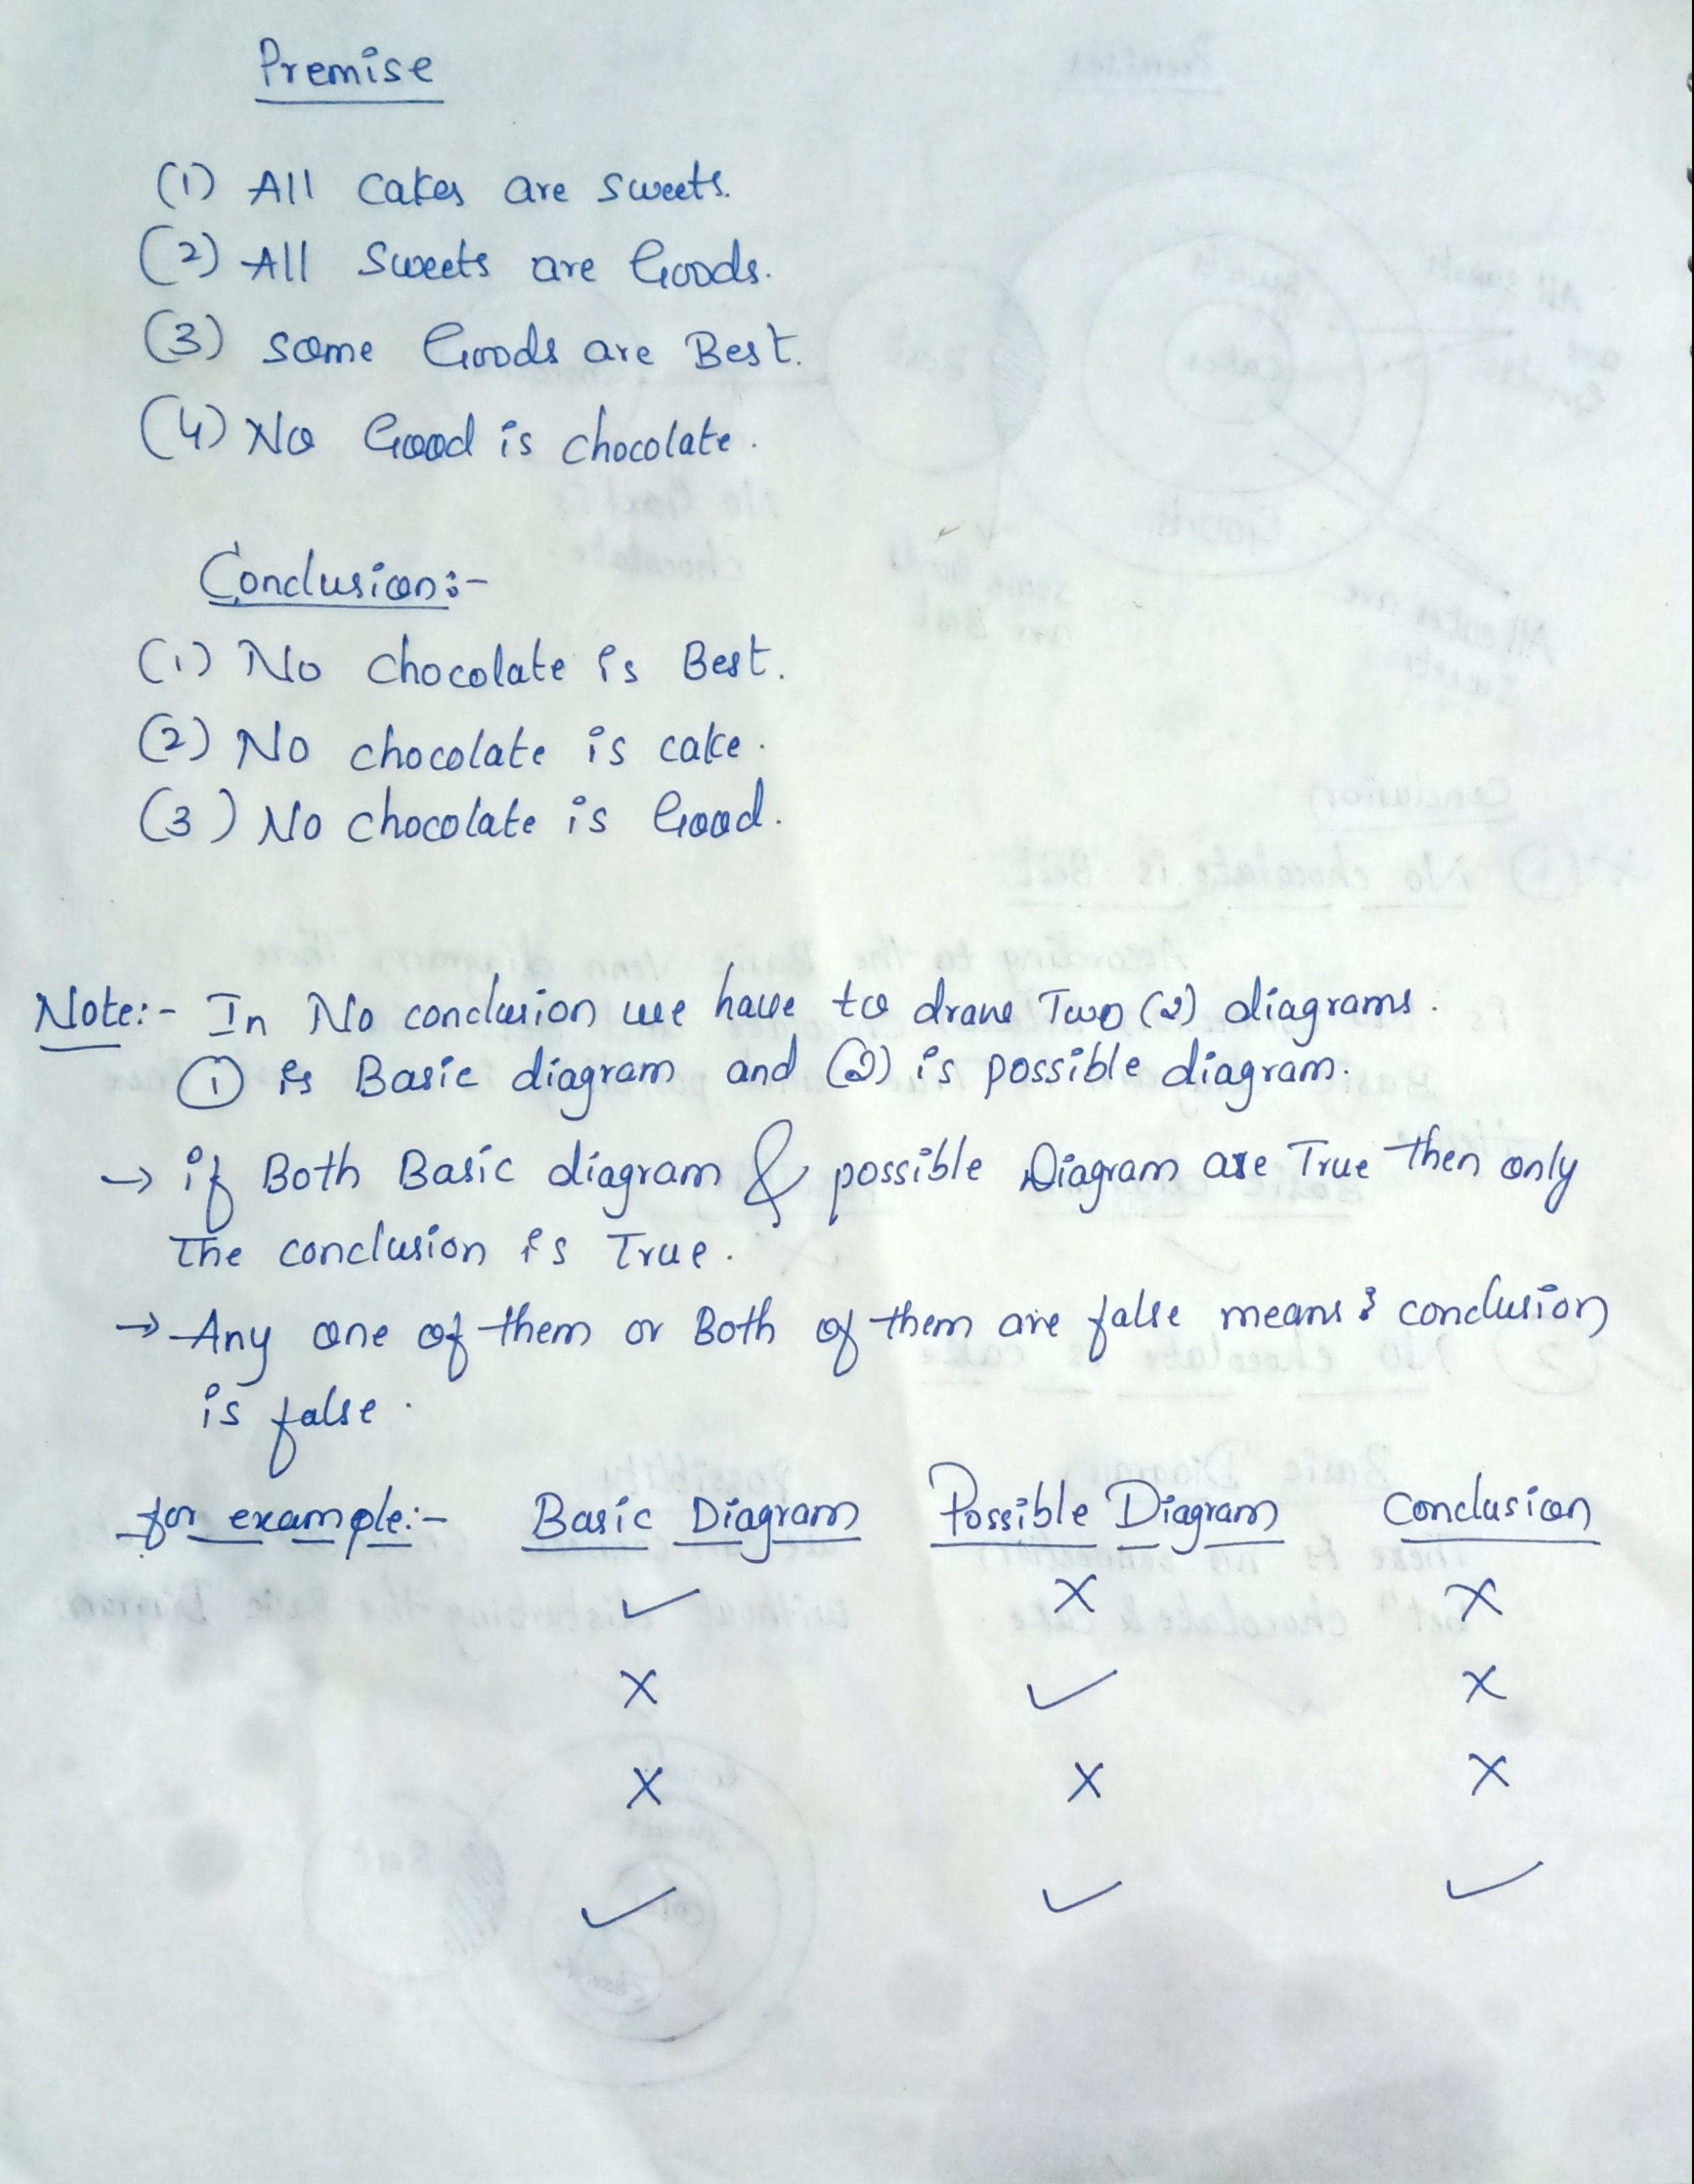 Premise
(1) All cakes are sweets.
(2) All Sweets are Goods.
(3) some Goods are Best.
(4) No Good is chocolate.
Conclusion:-
(1) No chocolate is Best.
(2) No chocolate is cake.
(3) No chocolate is Good.
Note:- In No conclusion we have to draw Two (2) diagrams.
① is Basic diagram and (2) is possible diagram.
→ if Both Basic diagram & possible Diagram are True then only
The conclusion is True.
→ Any one of them or Both of them are false means conclusion
is false.
for example:- Basic Diagram Possible Diagram Conclusion
✓ X X
X ✓ X
X X X
✓ ✓ ✓